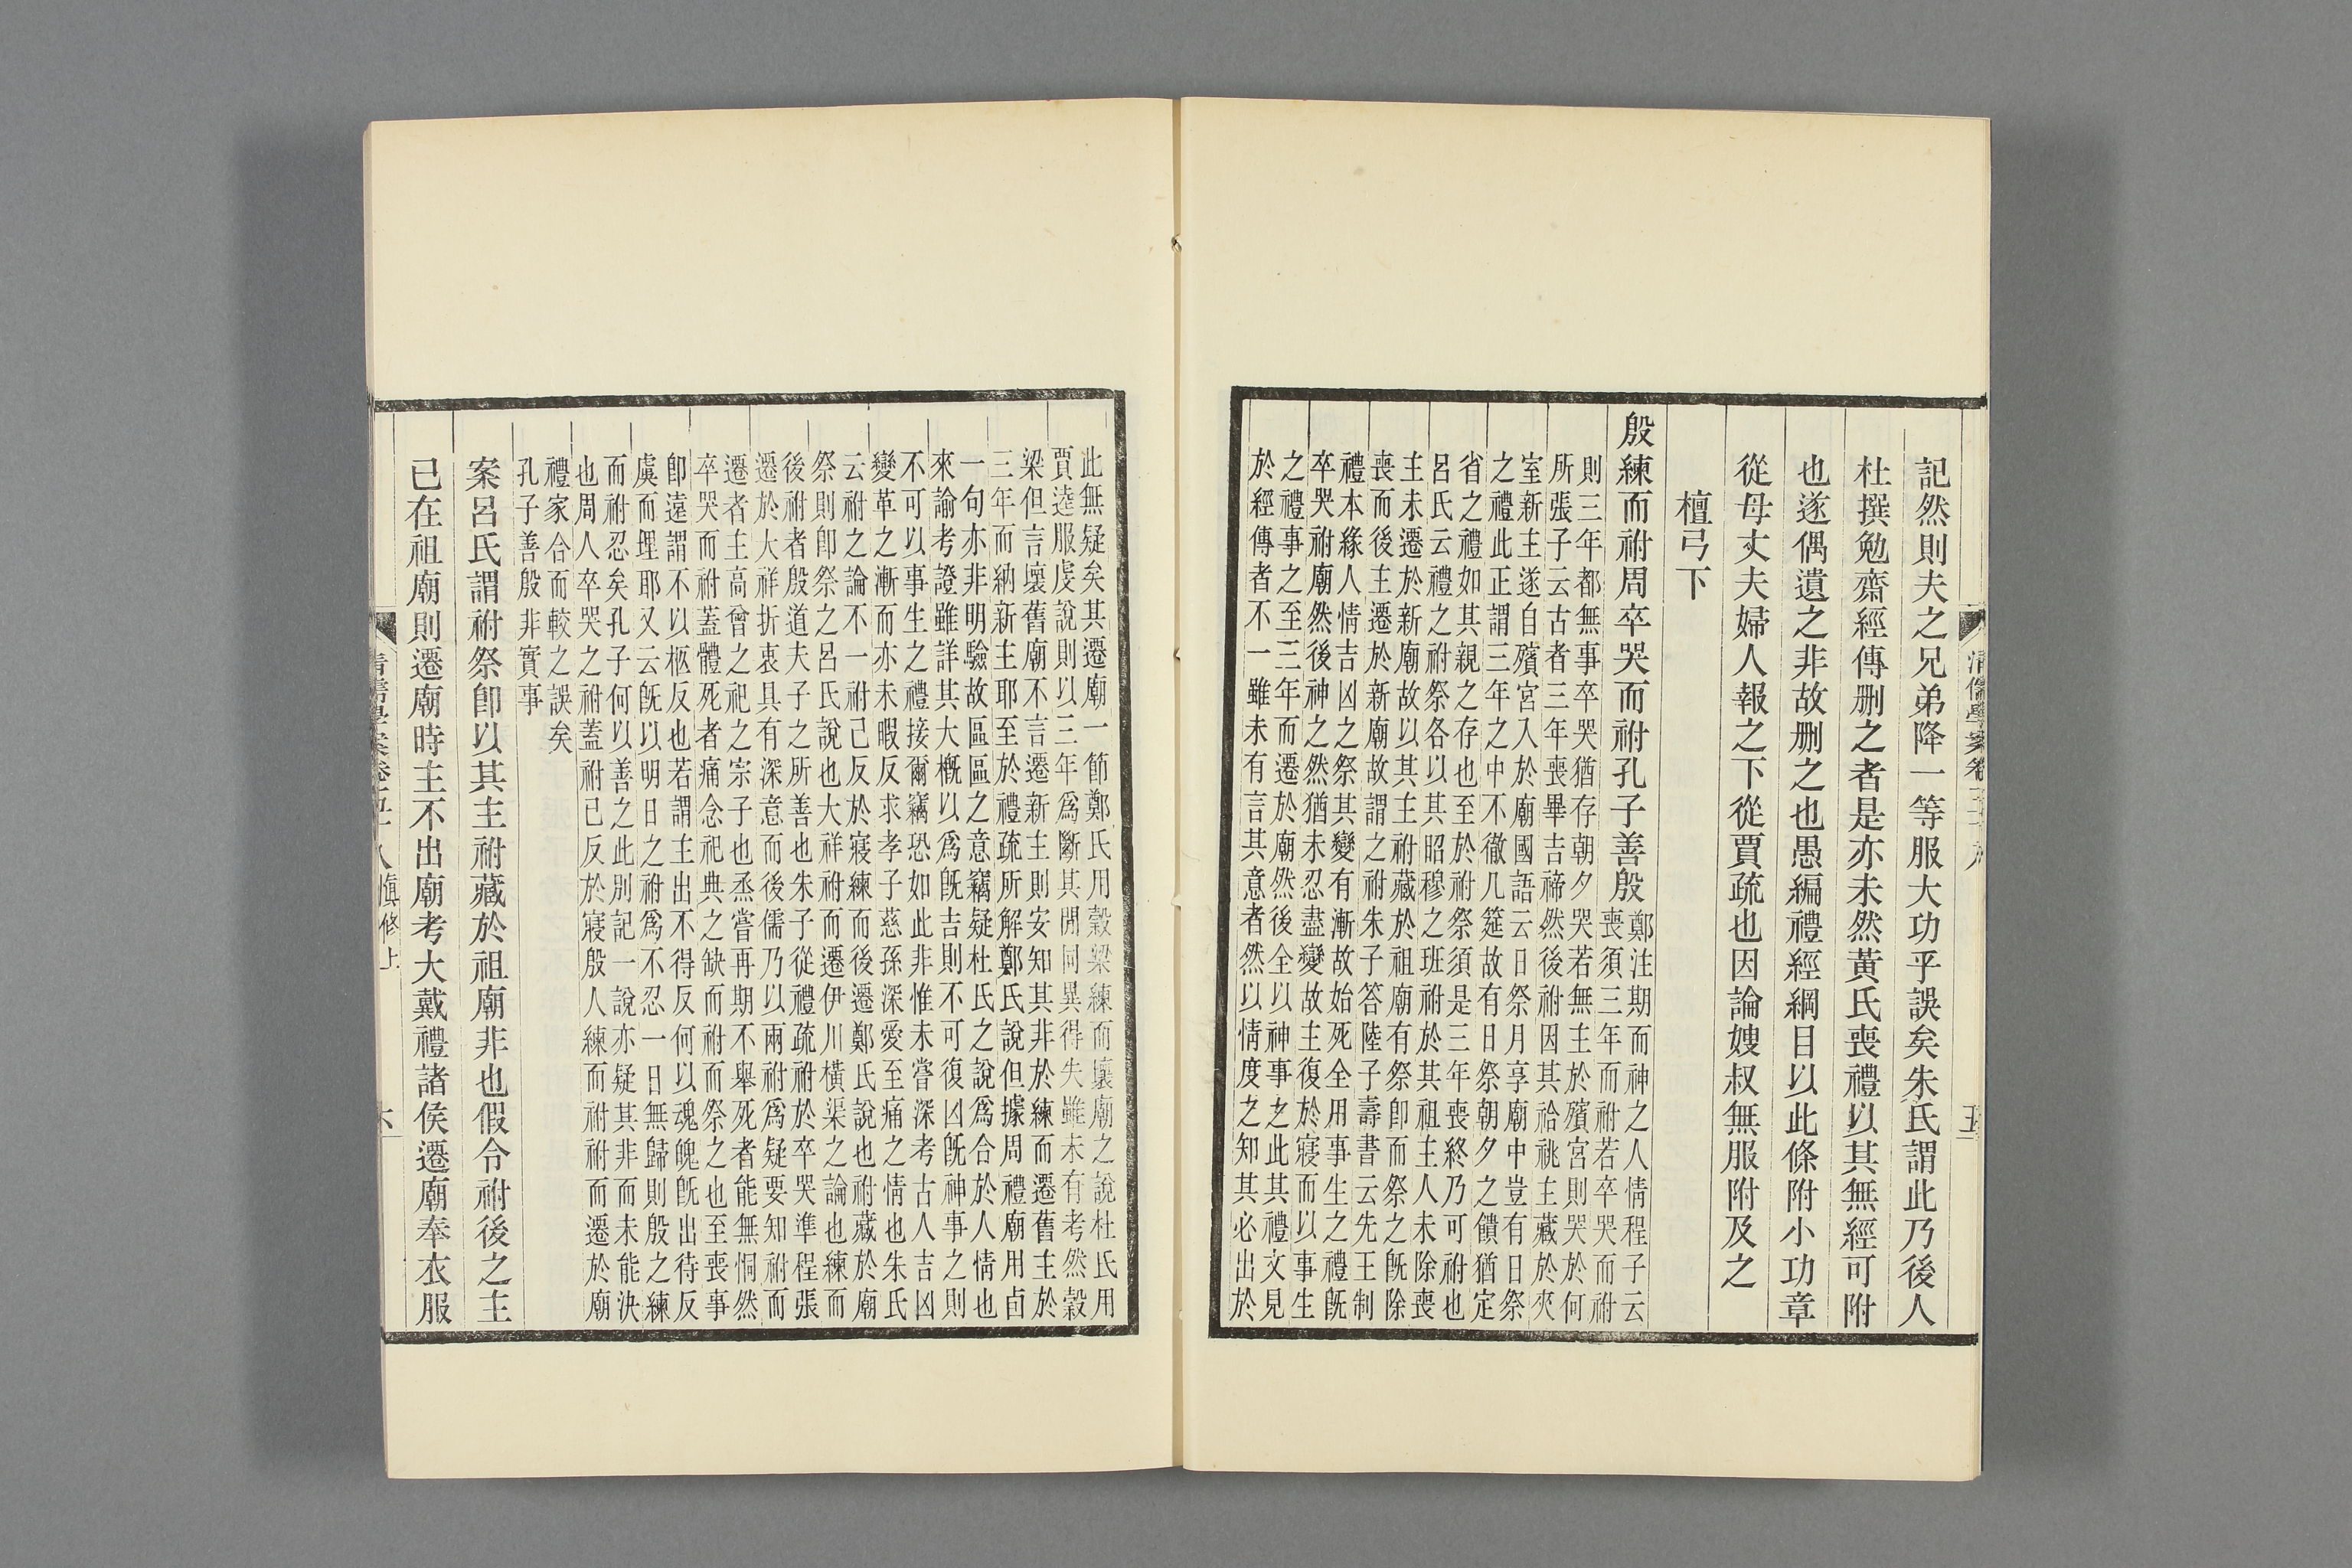 清儒學案卷五十八
五
記然則夫之兄弟降一等服大功乎誤矣朱氏謂此乃後人
杜撰勉齋經傳删之者是亦未然黃氏喪禮以其無經可附
也遂偶遺之非故删之也愚編禮經綱目以此條附小功章
從母丈夫婦人報之下從賈疏也因論嫂叔無服附及之
檀弓下
殷練而祔周卒哭而祔孔子善殷
鄭注期而神之人情程子云
喪須三年而祔若卒哭而祔
則三年都無事卒哭猶存朝夕哭若無主於殯宮則哭於何
所張子云古者三年喪畢吉禘然後祔因其祫祧主藏於夾
室新主遂自殯宮入於廟國語云日祭月享廟中豈有日祭
之禮此正謂三年之中不徹几筵故有日祭朝夕之饋猶定
省之禮如其親之存也至於祔祭須是三年喪終乃可祔也
呂氏云禮之祔祭各以其昭穆之班祔於其祖主人未除喪
主未遷於新廟故以其主祔藏於祖廟有祭卽而祭之旣除
喪而後主遷於新廟故謂之祔朱子答陸子壽書云先王制
禮本緣人情吉凶之祭其變有漸故始死全用事生之禮旣
卒哭祔廟然後神之然猶未忍盡變故主復於寢而以事生
之禮事之至三年而遷於廟然後全以神事之此其禮文見
於經傳者不一雖未有言其意者然以情度之知其必出於
此無疑矣其遷廟一節鄭氏用穀梁練而壞廟之說杜氏用
賈逵服虔說則以三年爲斷其閒同異得失雖未有考然穀
梁但言壞舊廟不言遷新主則安知其非於練而遷舊主於
三年而納新主耶至於禮疏所解鄭氏說但據周禮廟用卣
一句亦非明驗故區區之意竊疑杜氏之說爲合於人情也
來諭考證雖詳其大槪以爲旣吉則不可復凶旣神事之則
不可以事生之禮接爾竊恐如此非惟未嘗深考古人吉凶
變革之漸而亦未暇反求孝子慈孫深愛至痛之情也朱氏
云祔之論不一祔已反於寢練而後遷鄭氏說也祔藏於廟
祭則卽祭之呂氏說也大祥祔而遷伊川橫渠之論也練而
後祔者殷道夫子之所善也朱子從禮疏祔於卒哭準程張
遷於大祥折衷具有深意而後儒乃以兩祔爲疑要知祔而
遷者主高曾之祀之宗子也烝嘗再期不舉死者能無恫然
卒哭而祔蓋體死者痛念祀典之缺而祔而祭之也至喪事
卽遠謂不以柩反也若謂主出不得反何以魂魄旣出待反
虞而埋耶又云旣以明日之祔爲不忍一日無歸則殷之練
而祔忍矣孔子何以善之此別記一說亦疑其非而未能決
也周人卒哭之祔蓋祔已反於寢殷人練而祔祔而遷於廟
禮家合而較之誤矣
孔子善殷非實事
案呂氏謂祔祭卽以其主祔藏於祖廟非也假令祔後之主
已在祖廟則遷廟時主不出廟考大戴禮諸侯遷廟奉衣服
清儒學案卷五十八 慎修上
六